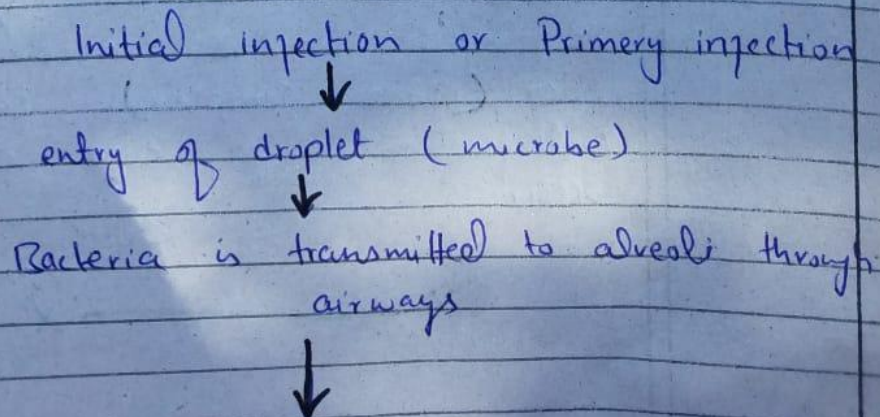 Initial infection or Primery infection
↓
entry of droplet (microbe)
↓
Bacteria is transmitted to alveoli through
airways
↓